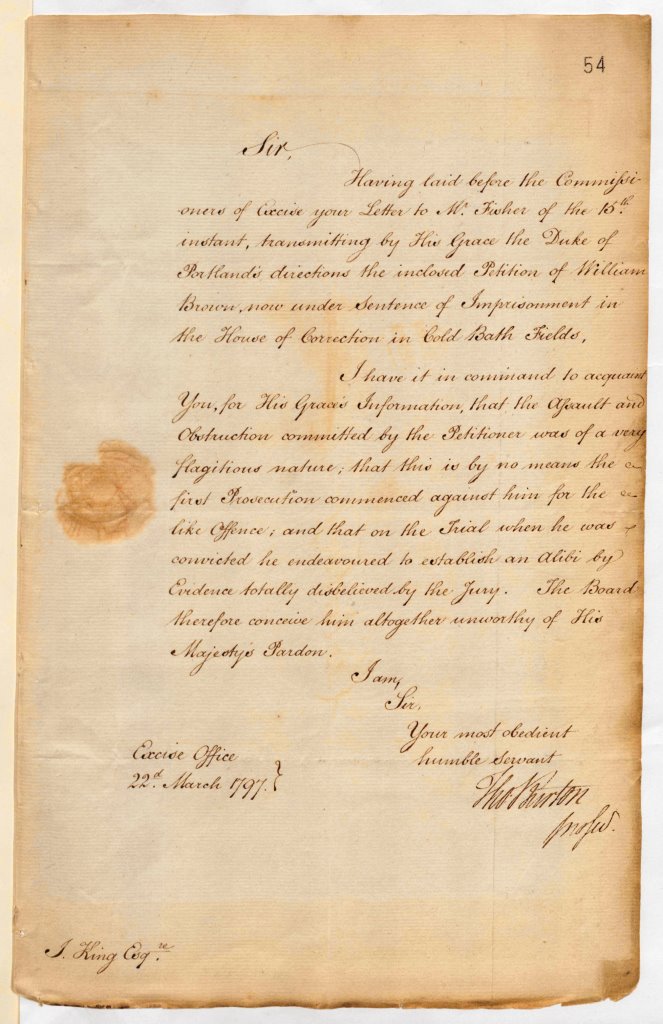 54
Sir,
Having laid before the Commissi-
oners of Excise your Letter to Mr. Fisher of the 15th.
instant, transmitting by His Grace the Duke of
Portland's directions the inclosed Petition of William
Brown, now under Sentence of Imprisonment in
the House of Correction in Cold Bath Fields,
I have it in command to acquaint
You, for His Grace's Information, that the Assault and
Obstruction committed by the Petitioner was of a very
flagitious nature; that this is by no means the
first Prosecution commenced against him for the
like Offence; and that on the Trial when he was
convicted he endeavoured to establish an Alibi by
Evidence totally disbelieved by the Jury. The Board
therefore conceive him altogether unworthy of His
Majesty's Pardon.
I am,
Sir,
Your most obedient
humble Servant
Excise Office
22d. March 1797.
Tho Burton
J. King Esqre.